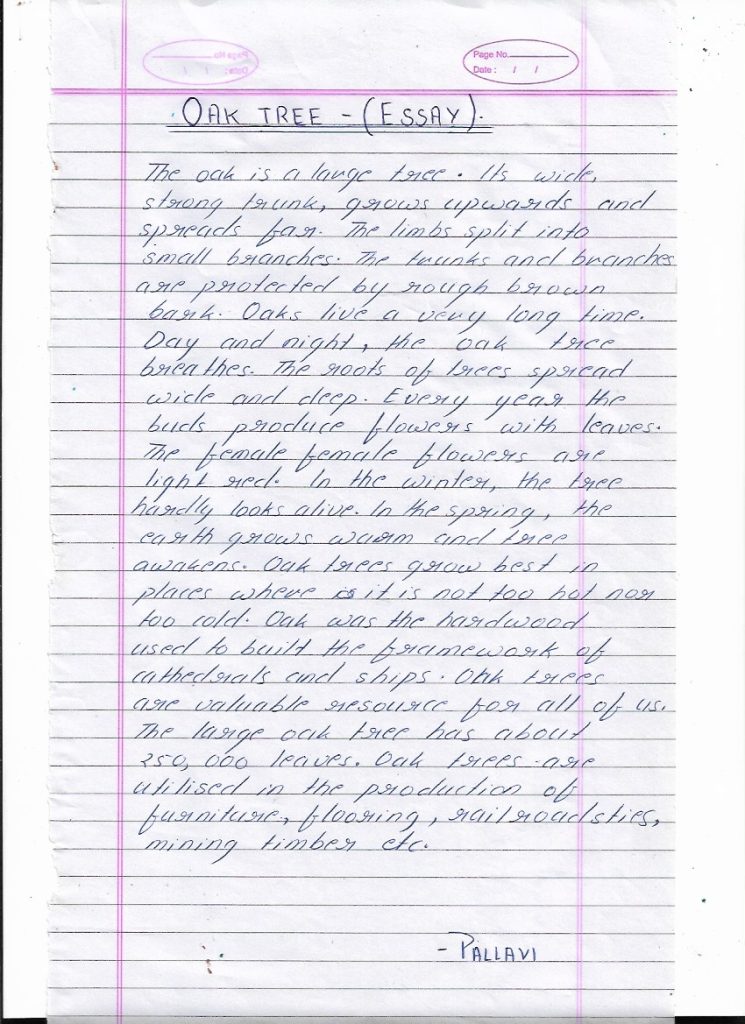 Page No.
Date : / /
OAK TREE - (ESSAY).
The oak is a large tree. Its wide,
strong trunk, grows upwards and
spreads far. The limbs split into
small branches. The trunks and branches
are protected by rough brown
bark. Oaks live a very long time.
Day and night, the oak tree
breathes. The roots of trees spread
wide and deep. Every year the
buds produce flowers with leaves.
The female female flowers are
light red. In the winter, the tree
hardly looks alive. In the spring, the
earth grows warm and tree
awakens. Oak trees grow best in
places where it is not too hot nor
too cold. Oak was the hardwood
used to built the framework of
cathedrals and ships. Oak trees
are valuable resource for all of us.
The large oak tree has about
250,000 leaves. Oak trees are
utilised in the production of
furniture, flooring, railroadsties,
mining timber etc.
- PALLAVI